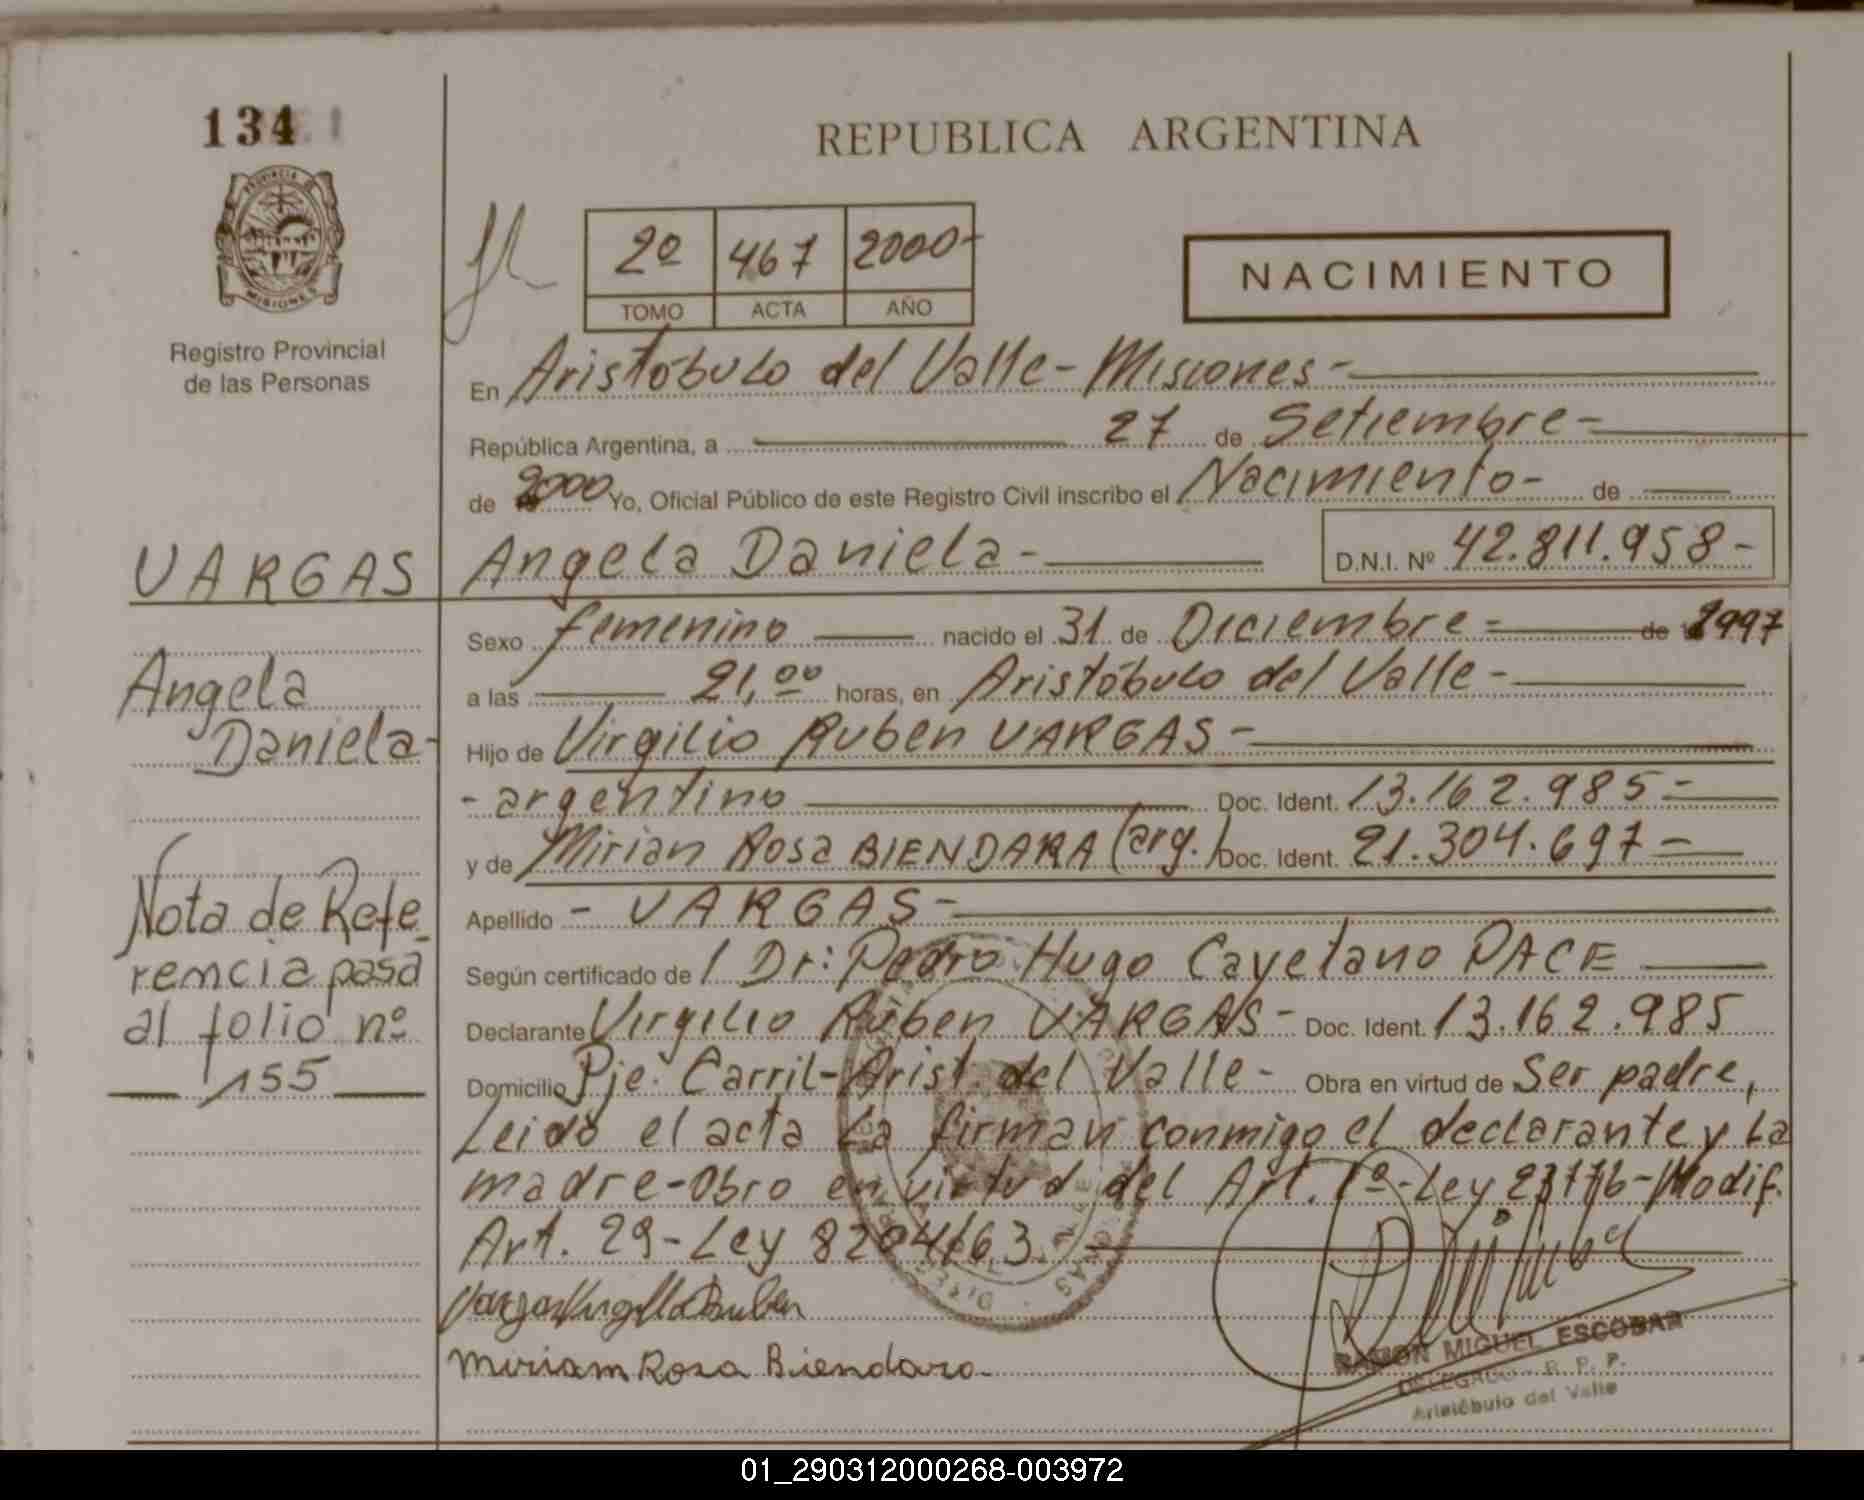 134
REPUBLICA ARGENTINA
PROVINCIA DE
MISIONES
Registro Provincial
de las Personas
2º 467 2000-
TOMO ACTA AÑO
NACIMIENTO
En Aristóbulo del Valle - Misiones -
República Argentina, a 27 de Setiembre -
de 2000 Yo, Oficial Público de este Registro Civil inscribo el Nacimiento - de
VARGAS Angela Daniela - D.N.I. Nº 42.811.958 -
Sexo femenino nacido el 31 de Diciembre = de 1997
a las 21,00 horas, en Aristóbulo del Valle -
Hijo de Virgilio Ruben VARGAS -
- argentino Doc. Ident. 13.162.985 =
y de Mirian Rosa BIENDARA (arg.) Doc. Ident. 21.304.697 -
Apellido - VARGAS -
Según certificado de / Dr: Pedro Hugo Cayetano PACE
Declarante Virgilio Ruben VARGAS - Doc. Ident. 13.162.985
Domicilio Pje. Carril - Arist. del Valle - Obra en virtud de Ser padre,
Leido el acta La firman conmigo el declarante y La
madre - Obro en virtud del Art. 1º - Ley 23776 - Modif.
Art. 29 - Ley 8204/63.
Vargas Virgilio Ruben
Miriam Rosa Biendara -
RAMON MIGUEL ESCOBAR
DELEGADO - R. P. P.
Aristóbulo del Valle
Angela
Daniela -
Nota de Refe
rencia pasa
al folio nº
155
01_290312000268-003972